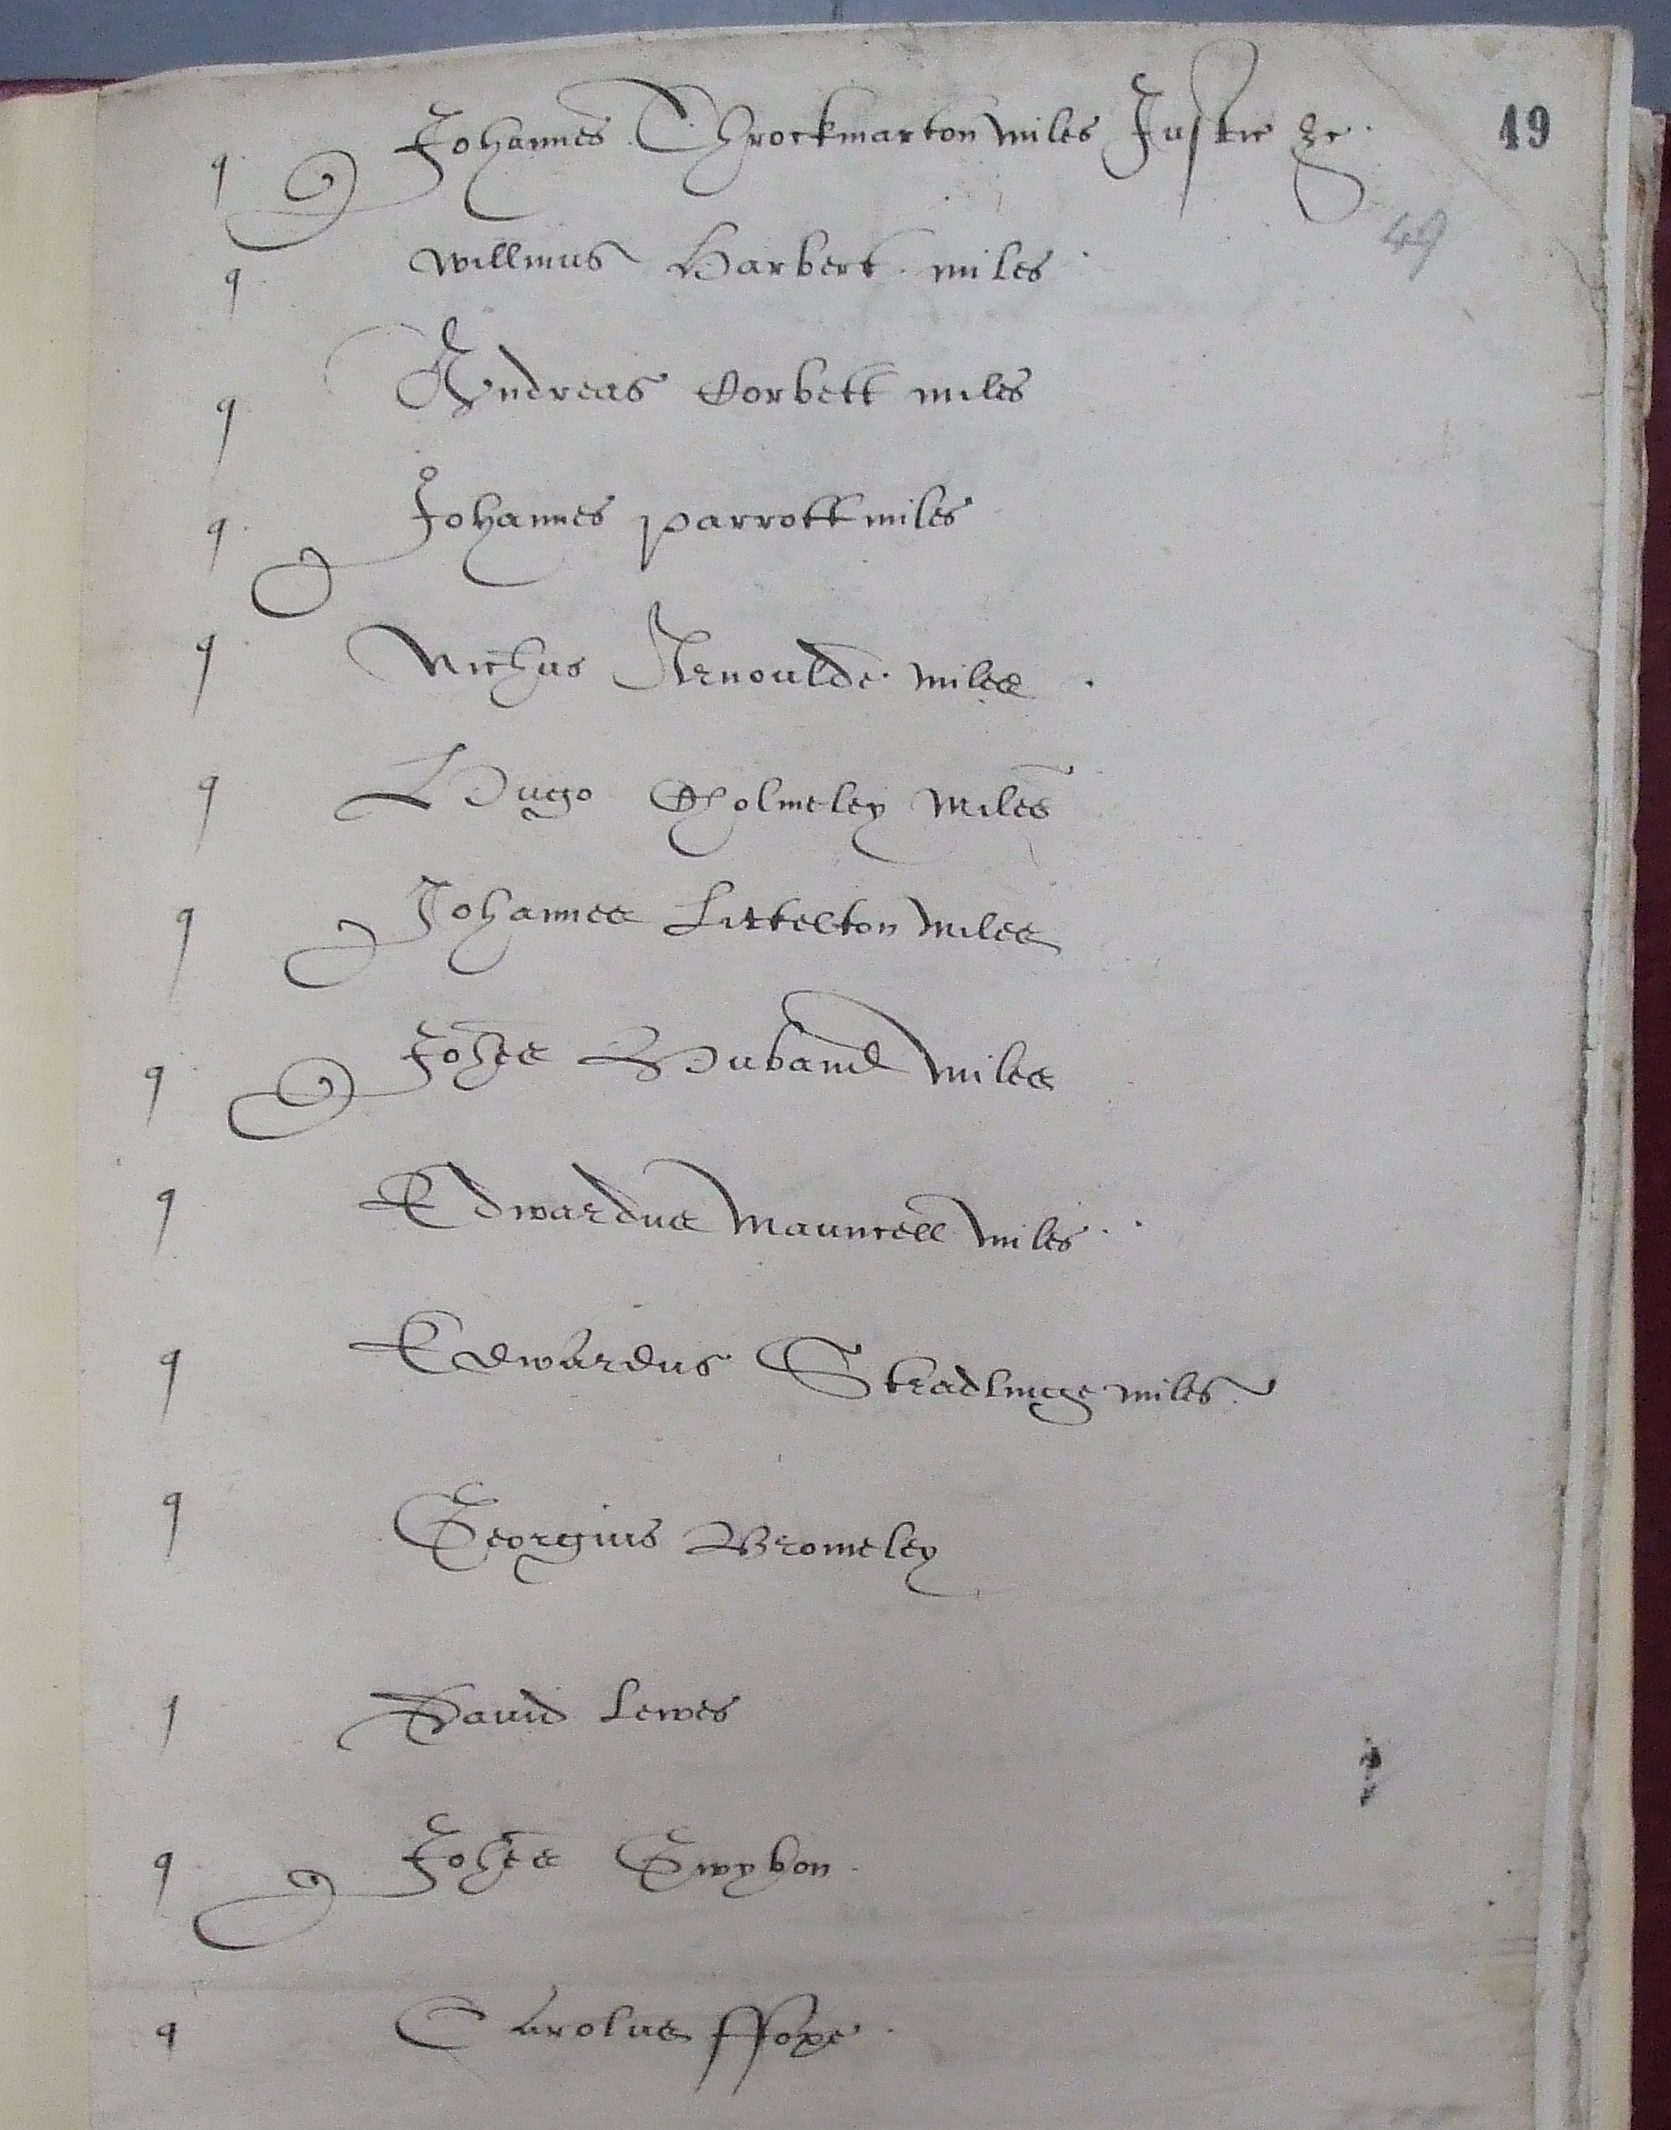 q Johannes Throckmarton miles Justic &c. 49
49
q Willmus Harbert miles
q Andreas Corbett miles
q Johannes Parrott miles
q Nichus Arnoulde miles
q Hugo Cholmeley miles
q Johannes Littelton miles
q Johes Huband miles
q Edwardus Mauncell miles
q Edwardus Stradlinge miles
q Georgius Bromeley
q David Lewes
q Johes Gwynon
q Carolus ffoxe